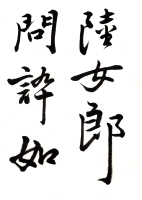 陸女郎
問誶如